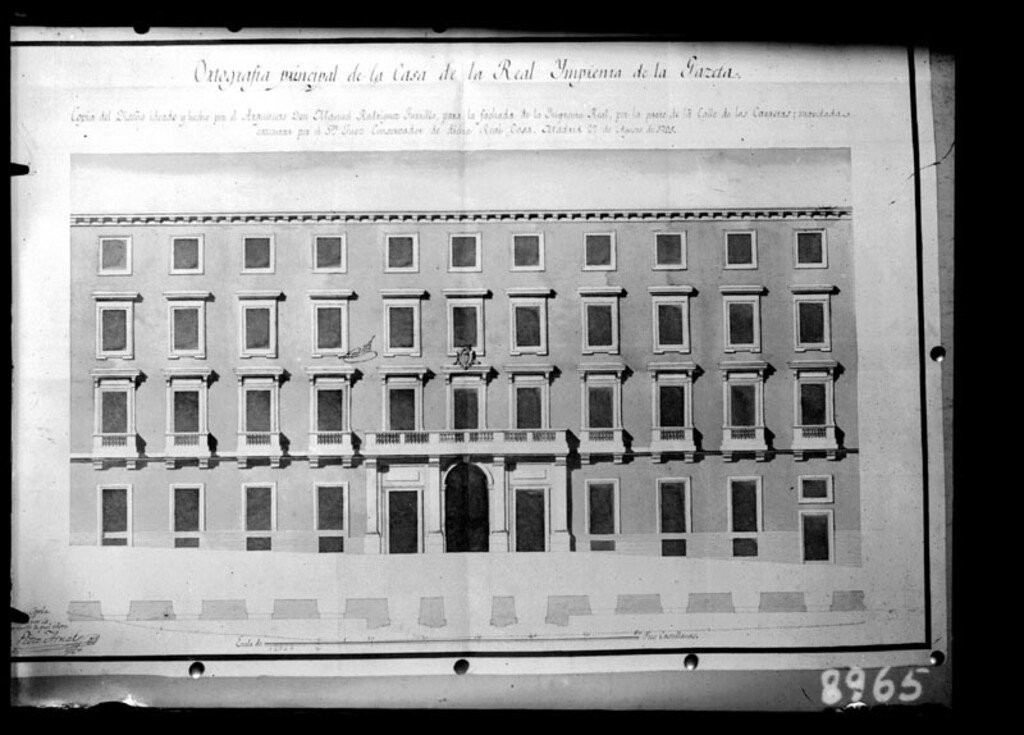 Ortografia principal de la Casa de la Real Imprenta de la Gazeta.
Copia del Diseño ideado y hecho por el Arquitecto Don Manuel Rodriguez para la fachada de la Imprenta Real, por la parte de la Calle de las Carretas; mandada
executar por el Sr. Juez Conservador de dicha Real Casa. Madrid 27 de Agosto de
Escala de Pies Castellanos.
Pedro Arnal
8965